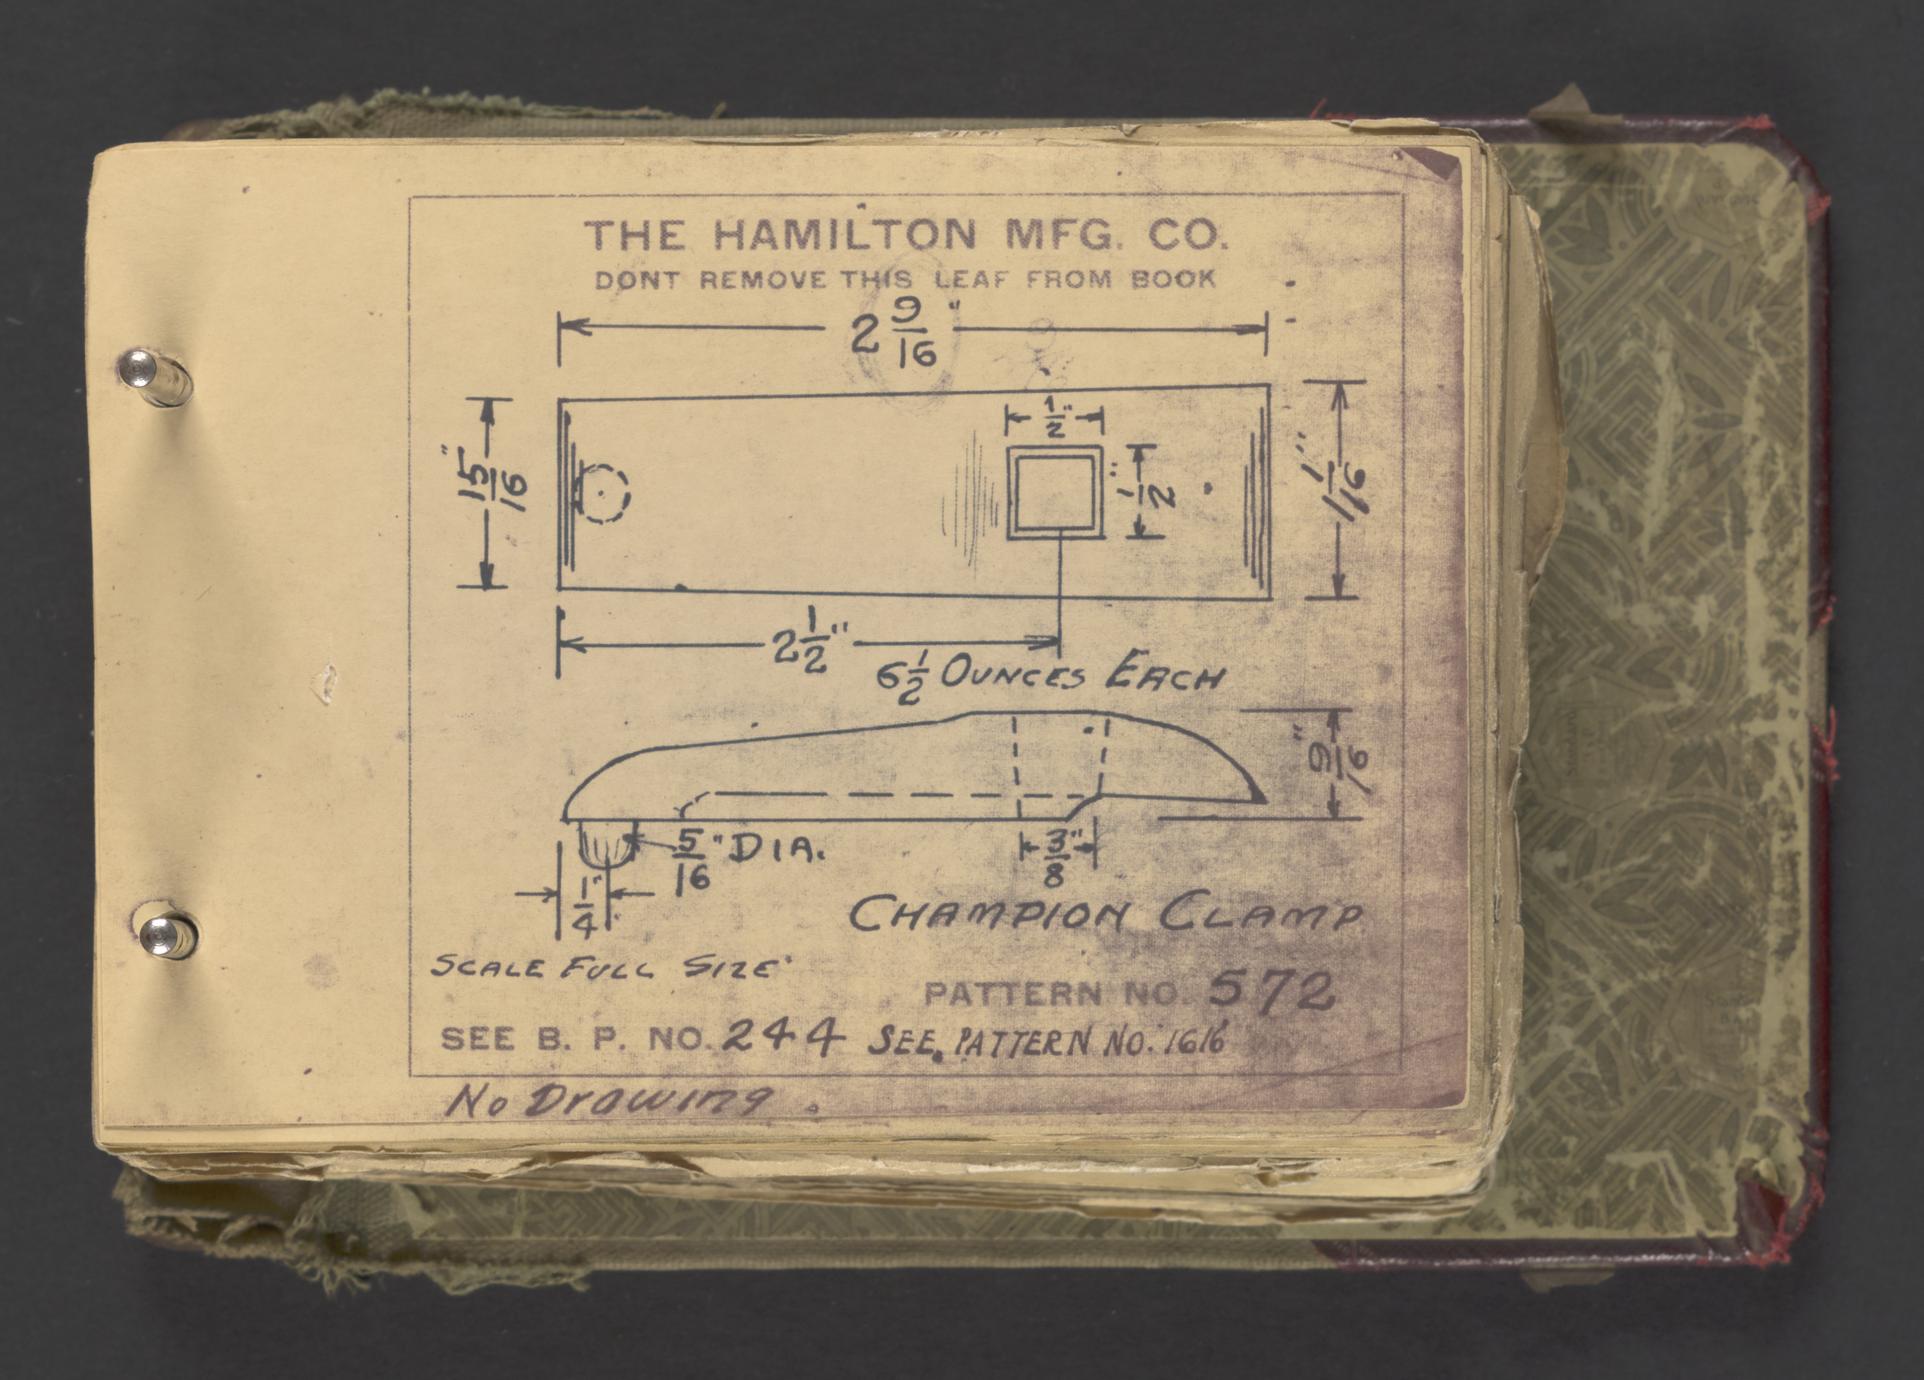 THE HAMILTON MFG. CO.
DONT REMOVE THIS LEAF FROM BOOK
2 9/16"
1/2"
15/16"
1/2"
1 1/16"
2 1/2"
6 1/2 OUNCES EACH
9/16"
5/16" DIA.
3/8"
1/4"
CHAMPION CLAMP
SCALE FULL SIZE
PATTERN NO. 572
SEE B. P. NO. 244 SEE PATTERN NO. 1616
No Drawing.